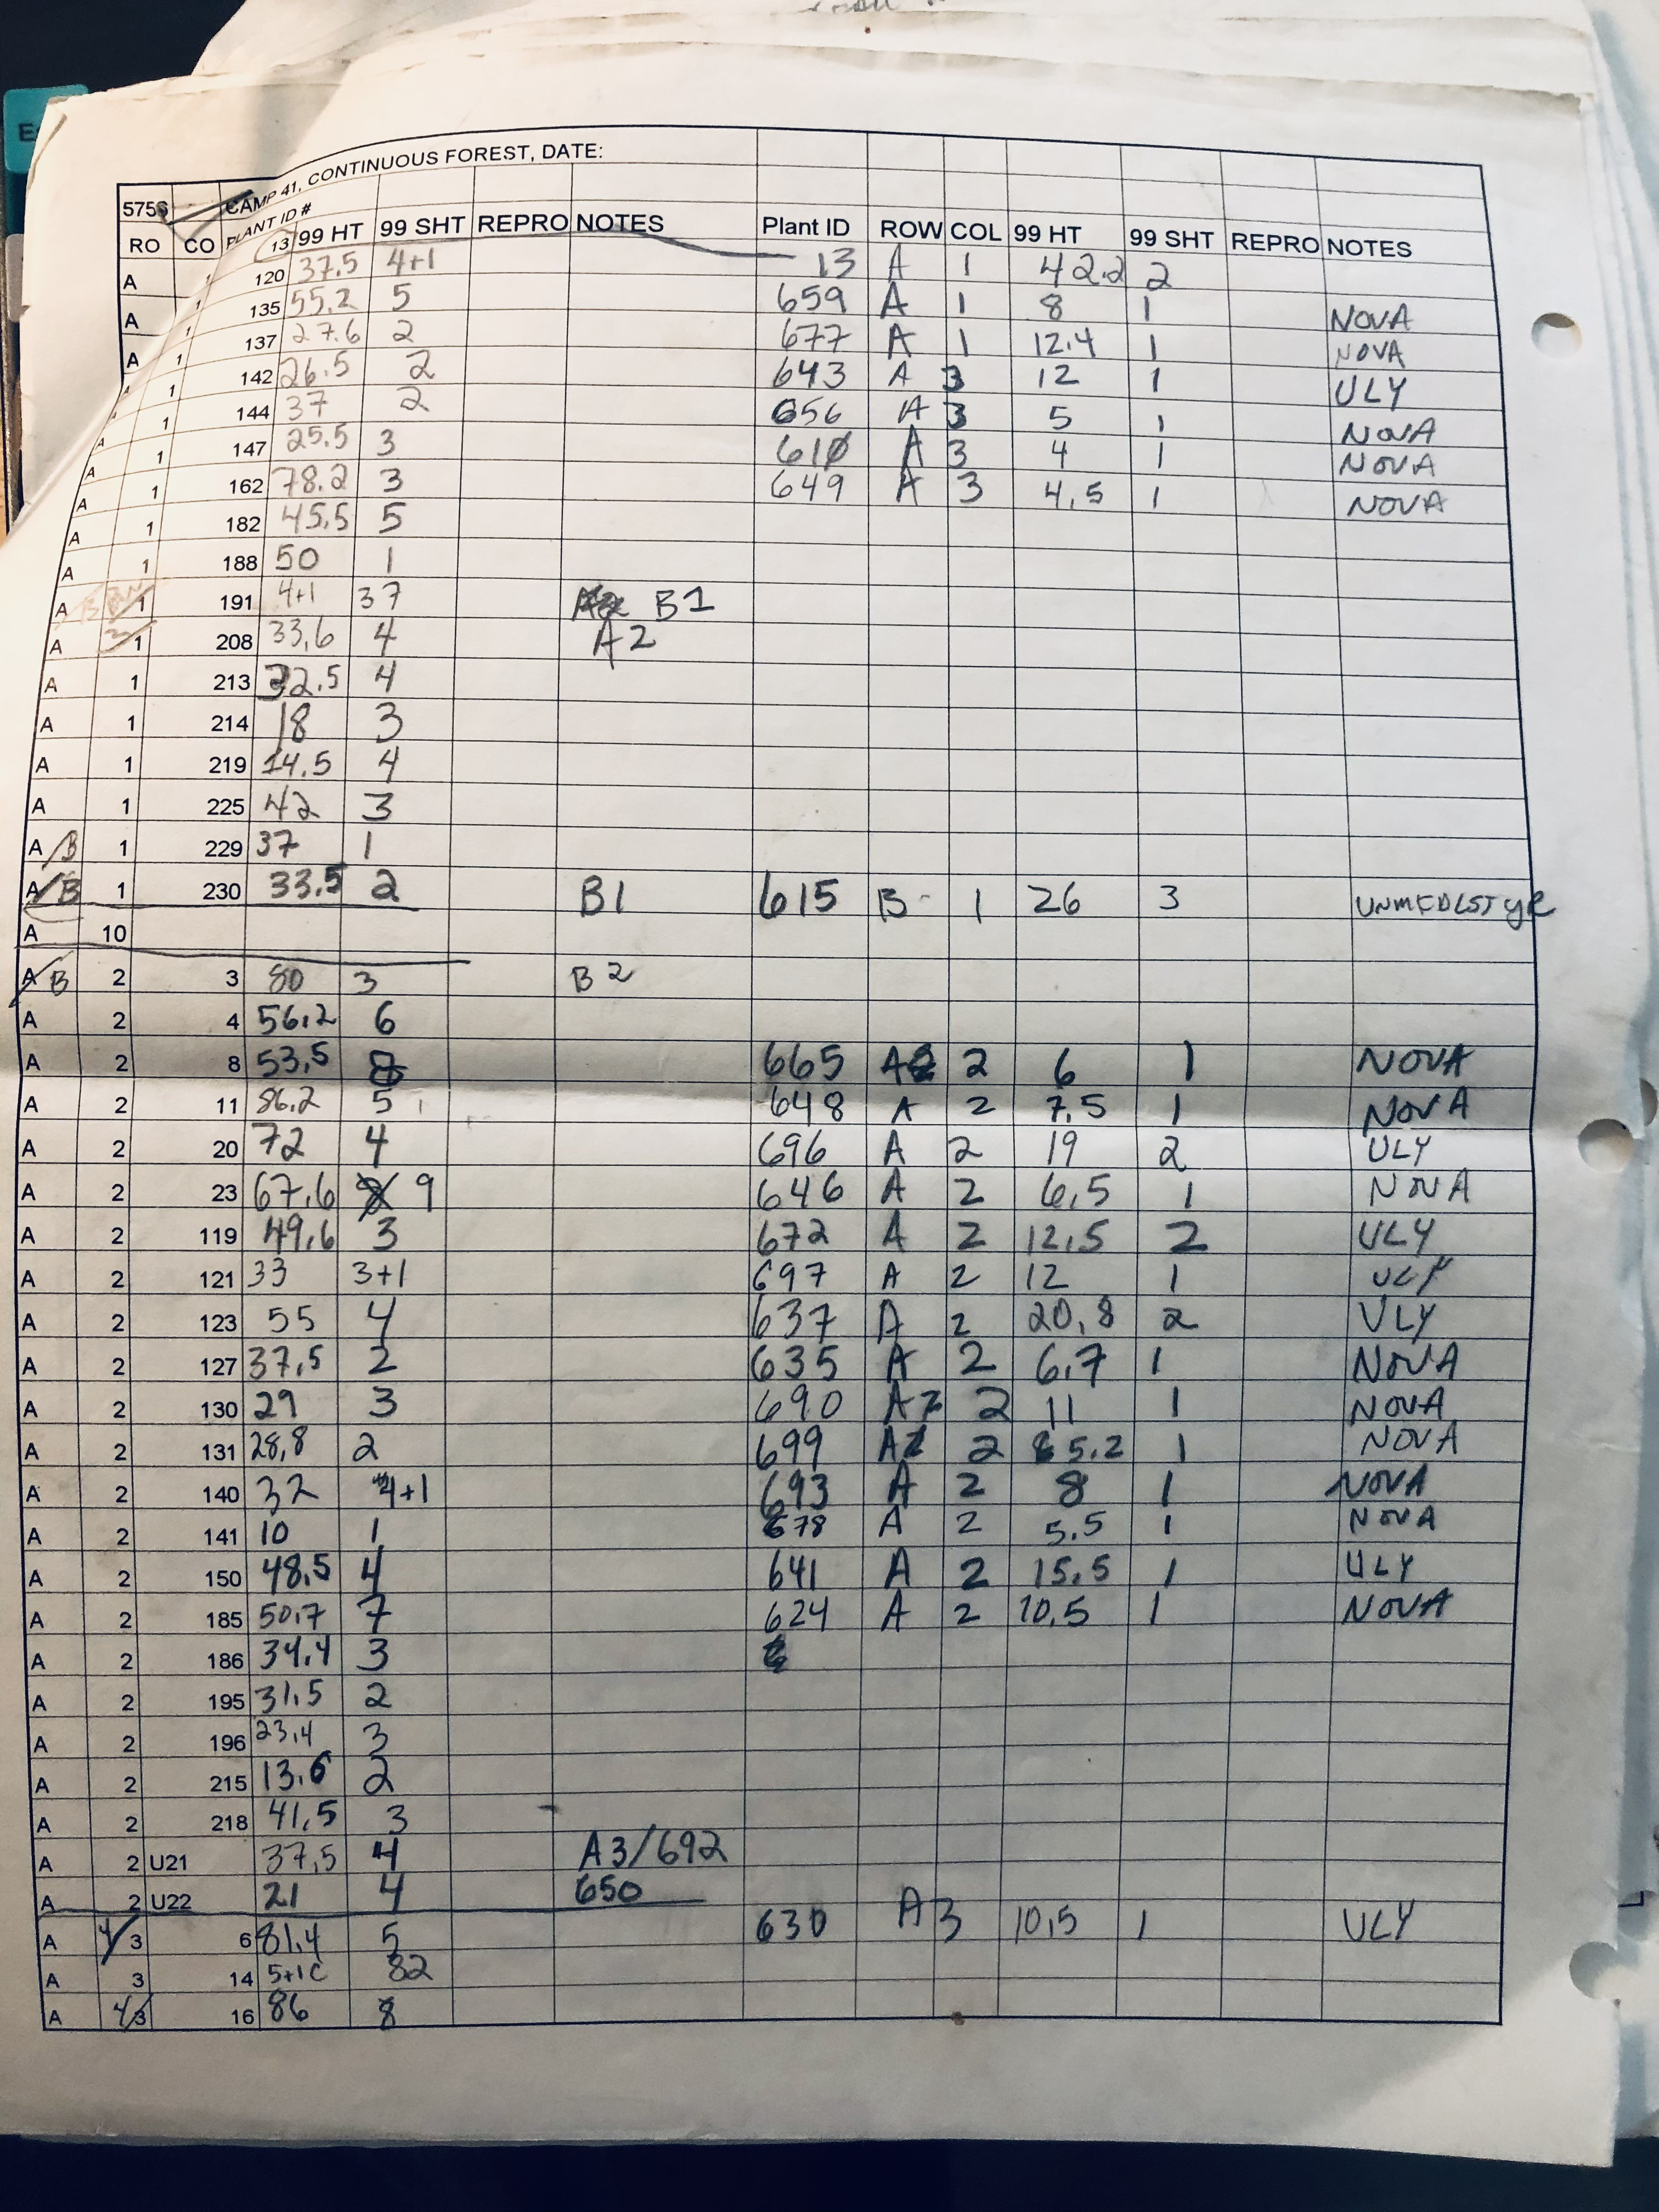 5756 CAMP 41, CONTINUOUS FOREST, DATE:
RO CO PLANT ID # 99 HT 99 SHT REPRO NOTES Plant ID ROW COL 99 HT 99 SHT REPRO NOTES
13 13 A 1 42.2 2
A 1 120 37.5 4+1
A 1 135 55.2 5 659 A 1 8 1 NOVA
A 1 137 27.6 2 677 A 1 12.4 1 NOVA
A 1 142 26.5 2 643 A 3 12 1 ULY
A 1 144 37 2 656 A 3 5 1 NOVA
A 1 147 25.5 3 610 A 3 4 1 NOVA
A 1 162 78.2 3 649 A 3 4,5 1 NOVA
A 1 182 45.5 5
A 1 188 50 1
A 1 191 4+1 37 B1
A 1 208 33,6 4 A2
A 1 213 32.5 4
A 1 214 18 3
A 1 219 14.5 4
A 1 225 42 3
A/B 1 229 37 1
A/B 1 230 33.5 2 B1 615 B 1 26 3 UNMEDLSTYR
A 10
A/B 2 3 80 3 B2
A 2 4 56,2 6
A 2 8 53,5 8 665 A 2 6 1 NOVA
A 2 11 86.2 5 648 A 2 7,5 1 NOVA
A 2 20 72 4 696 A 2 19 2 ULY
A 2 23 67,6 9 646 A 2 6,5 1 NOVA
A 2 119 49,6 3 672 A 2 12,5 2 ULY
A 2 121 33 3+1 697 A 2 12 1 ULY
A 2 123 55 4 637 A 2 20,8 2 ULY
A 2 127 37,5 2 635 A 2 6,7 1 NOVA
A 2 130 29 3 690 A 2 11 1 NOVA
A 2 131 28,8 2 699 A 2 5.2 1 NOVA
A 2 140 32 4+1 693 A 2 8 1 NOVA
A 2 141 10 1 678 A 2 5.5 1 NOVA
A 2 150 48,5 4 641 A 2 15.5 1 ULY
A 2 185 50,7 7 624 A 2 10,5 1 NOVA
A 2 186 34,4 3
A 2 195 31,5 2
A 2 196 23,4 3
A 2 215 13,6 2
A 2 218 41,5 3
A 2 U21 37,5 4 A3/692
A 2 U22 21 4 650
A 4/3 6 81,4 5 630 A 3 10,5 1 ULY
A 3 14 5+1C 82
A 4/3 16 86 8